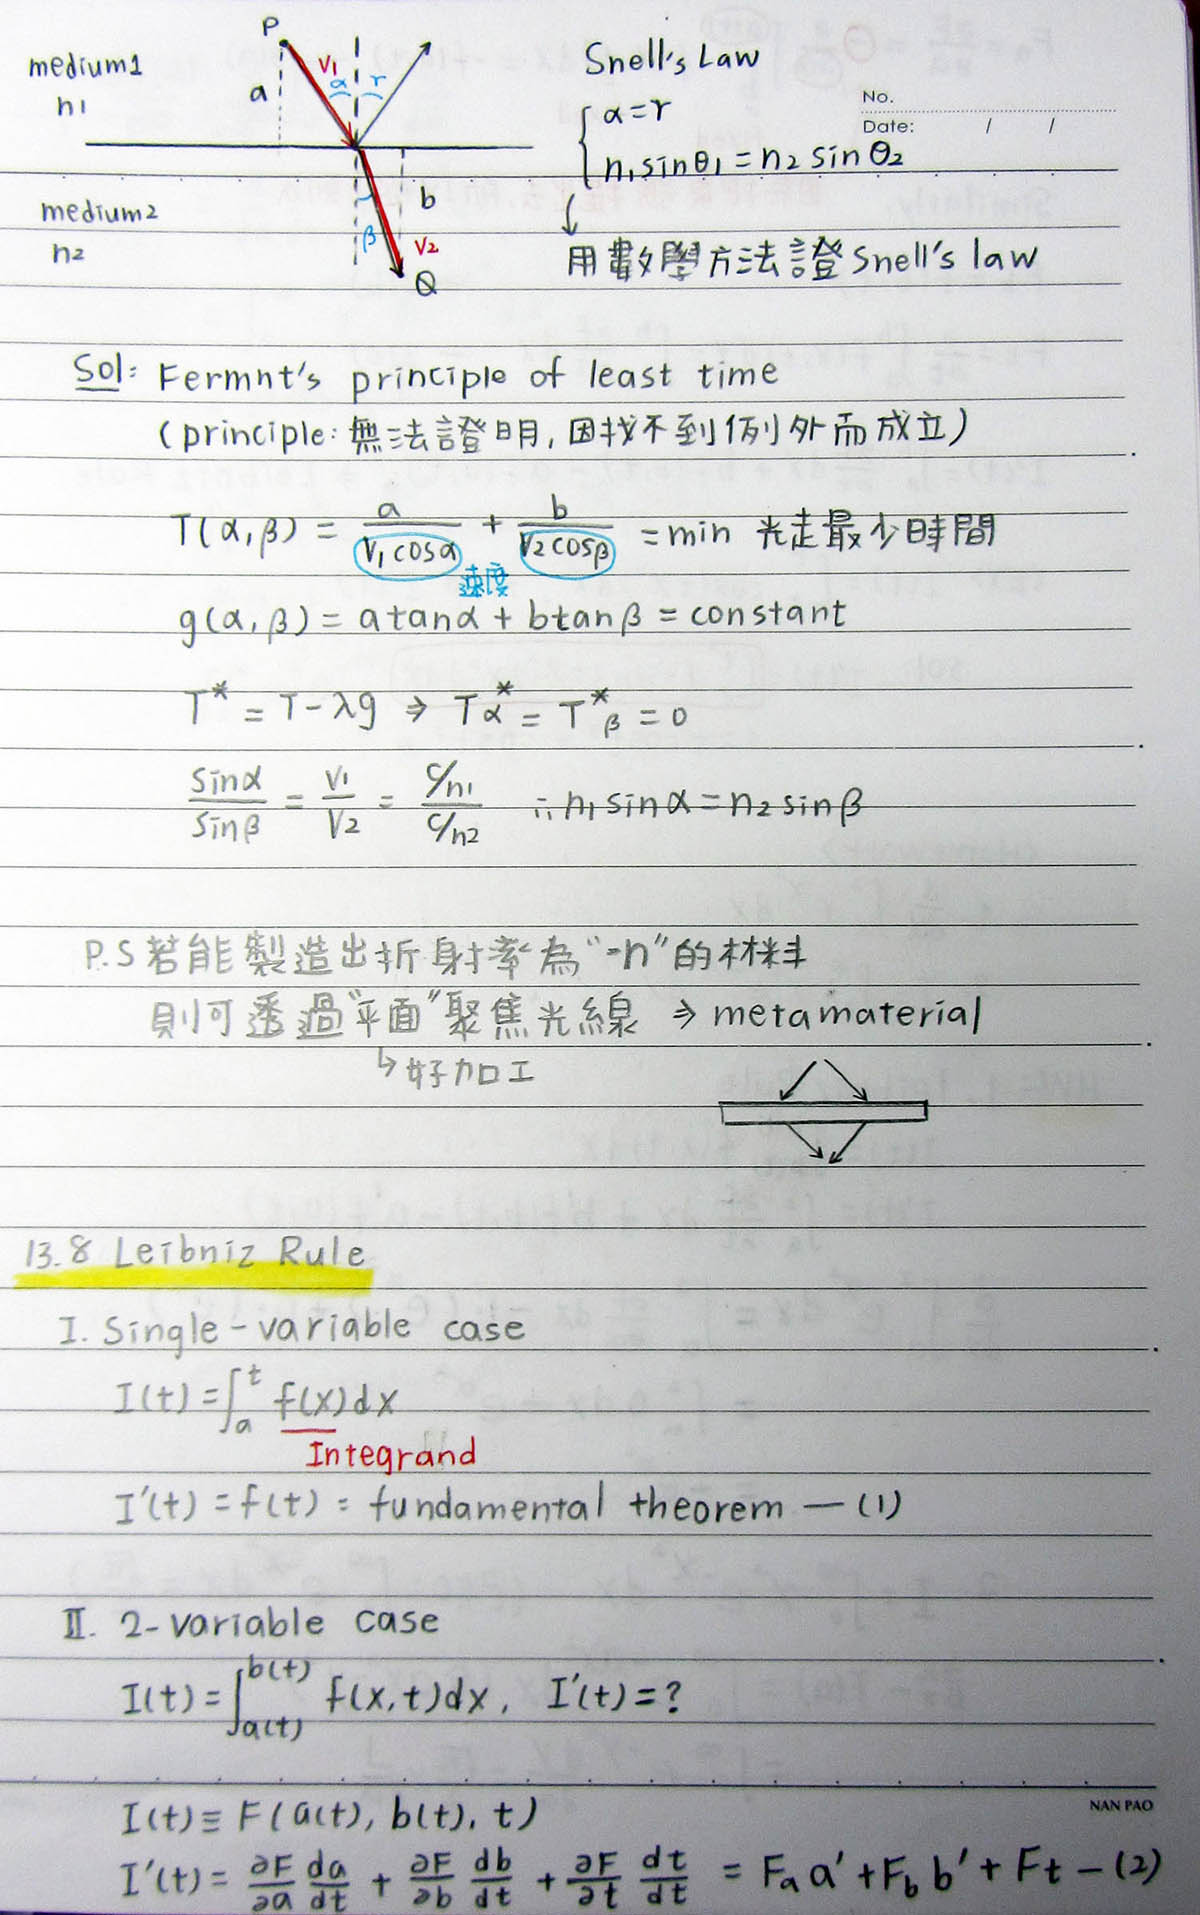 P
medium1
n1
a
V1
α
r
Snell's Law
No.
Date: / /
α=r
n1 sinθ1 = n2 sinθ2
medium2
n2
b
β
V2
Q
用數學方法證 Snell's law
Sol: Fermnt's principle of least time
(principle: 無法證明, 因找不到例外而成立)
T(α,β) = a/(V1 cosα) + b/(V2 cosβ) = min 光走最少時間
速度
g(α,β) = a tanα + b tanβ = constant
T* = T-λg ⇒ T*α = T*β = 0
sinα/sinβ = V1/V2 = (c/n1)/(c/n2) ∴ n1 sinα = n2 sinβ
P.S 若能製造出折射率為 "-n" 的材料
則可透過 "平面" 聚焦光線 ⇒ metamaterial
↳ 好加工
13.8 Leibniz Rule
I. Single-variable case
I(t) = ∫_a^t f(x)dx
Integrand
I'(t) = f(t) = fundamental theorem — (1)
II. 2-variable case
I(t) = ∫_{a(t)}^{b(t)} f(x,t)dx, I'(t)=?
NAN PAO
I(t) ≡ F(a(t), b(t), t)
I'(t) = ∂F/∂a da/dt + ∂F/∂b db/dt + ∂F/∂t dt/dt = Fa a' + Fb b' + Ft — (2)